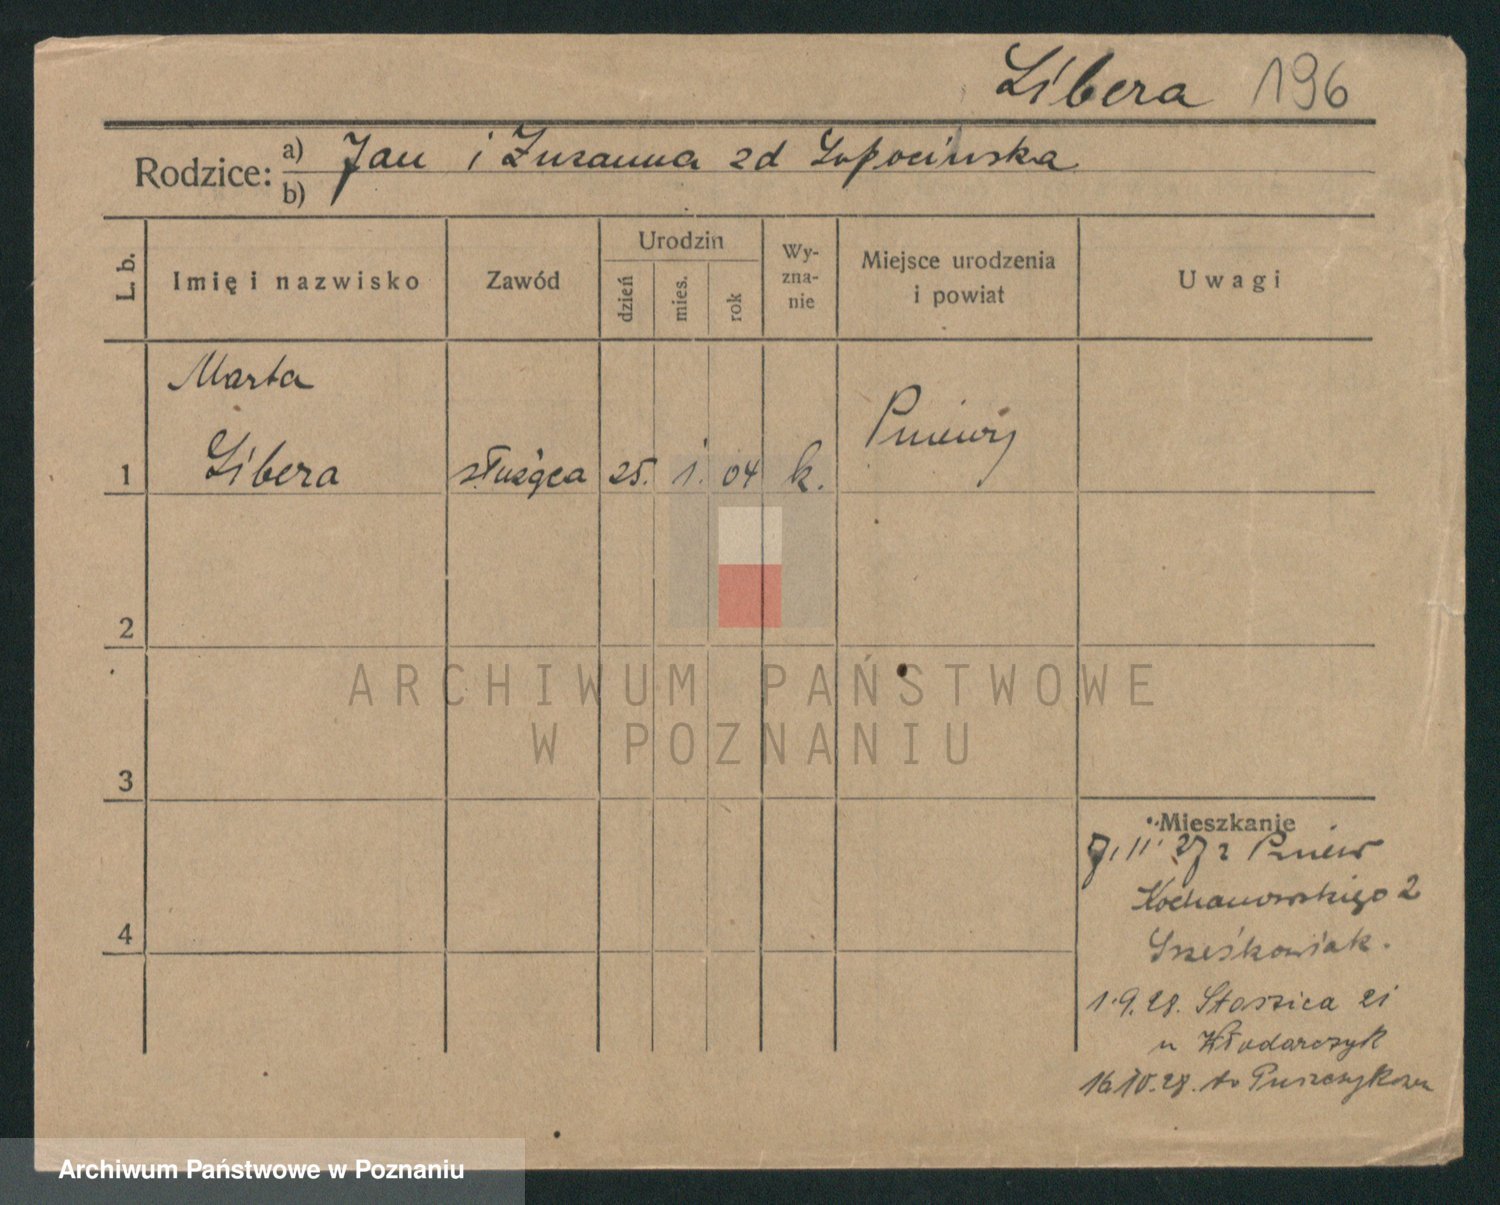 Libera 196
Rodzice: a) Jan i Zuzanna zd Łopocińska
b)
L. b.
Imię i nazwisko
Zawód
Urodzin
dzień
mies.
rok
Wy-
zna-
nie
Miejsce urodzenia
i powiat
Uwagi
Marta
1 Libera służąca 25. 1. 04 k. Pniewy
2
3
4
Mieszkanie
7.11.27 z Pniew
Kochanowskiego 2
1.9.28. Staszica 21
u Włodarczyk
ARCHIWUM PAŃSTWOWE
W POZNANIU
Archiwum Państwowe w Poznaniu